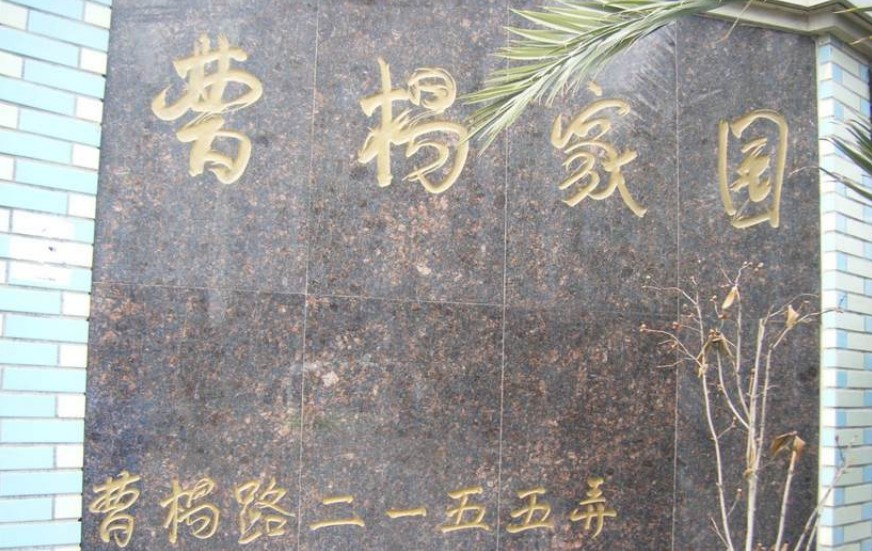 曹楊家园
曹楊路二一五五弄